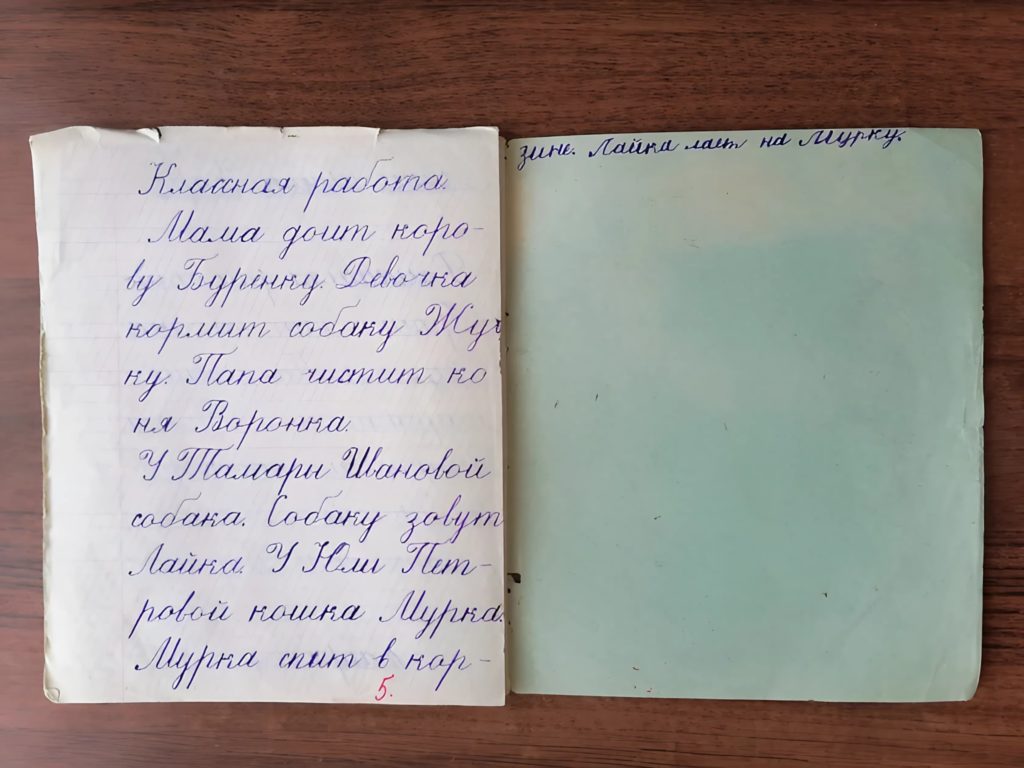 Классная работа.
Мама доит коро-
ву Бурёнку. Девочка
кормит собаку Жуч
ку. Папа чистит ко
ня Воронка.
У Тамары Ивановой
собака. Собаку зовут
Лайка. У Юли Пет-
ровой кошка Мурка.
Мурка спит в кор-
5.
зине. Лайка лает на Мурку.